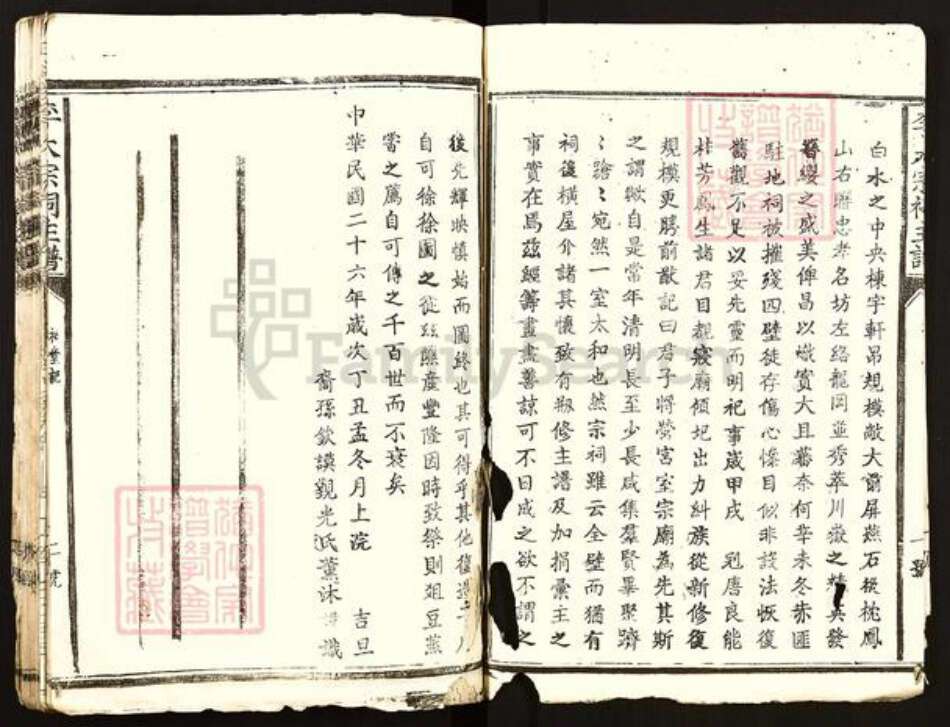 白水之中央棟宇軒昂規模敞大前屏燕石後枕鳳
山右聯忠孝名坊左絡龍岡並秀萃川嶽之精英發
簪纓之盛美俾昌以熾實大且蕃奈何辛未冬赤匪
駐地祠被摧殘四壁徒存傷心慘目似非設法恢復
舊觀不足以妥先靈而明祀事歲甲戌 冠唐良能
桂芳 生諸君目覩寢廟傾圯出力糾族從新修復
規模更勝前猷記曰君子將營宮室宗廟為先其斯
之謂歟自是常年清明長至少長咸集羣賢畢聚濟
濟蹌蹌宛然一室太和也然宗祠雖云全璧而猶有
祠後橫屋介諸其懷致有剏修主譜及加捐彙主之
事實在焉茲經籌畫盡善諒可不日成之欲不謂之
後先輝映慎始而圖終也其可得乎其他復 人
自可徐徐圖之從茲賺產豐隆因時致祭則俎豆蒸
嘗之薦自可傳之千百世而不衰矣
中華民國二十六年歲次丁丑孟冬月上浣 吉旦
裔孫欽謨覲光氏薰沐 識
李大宗祠主譜